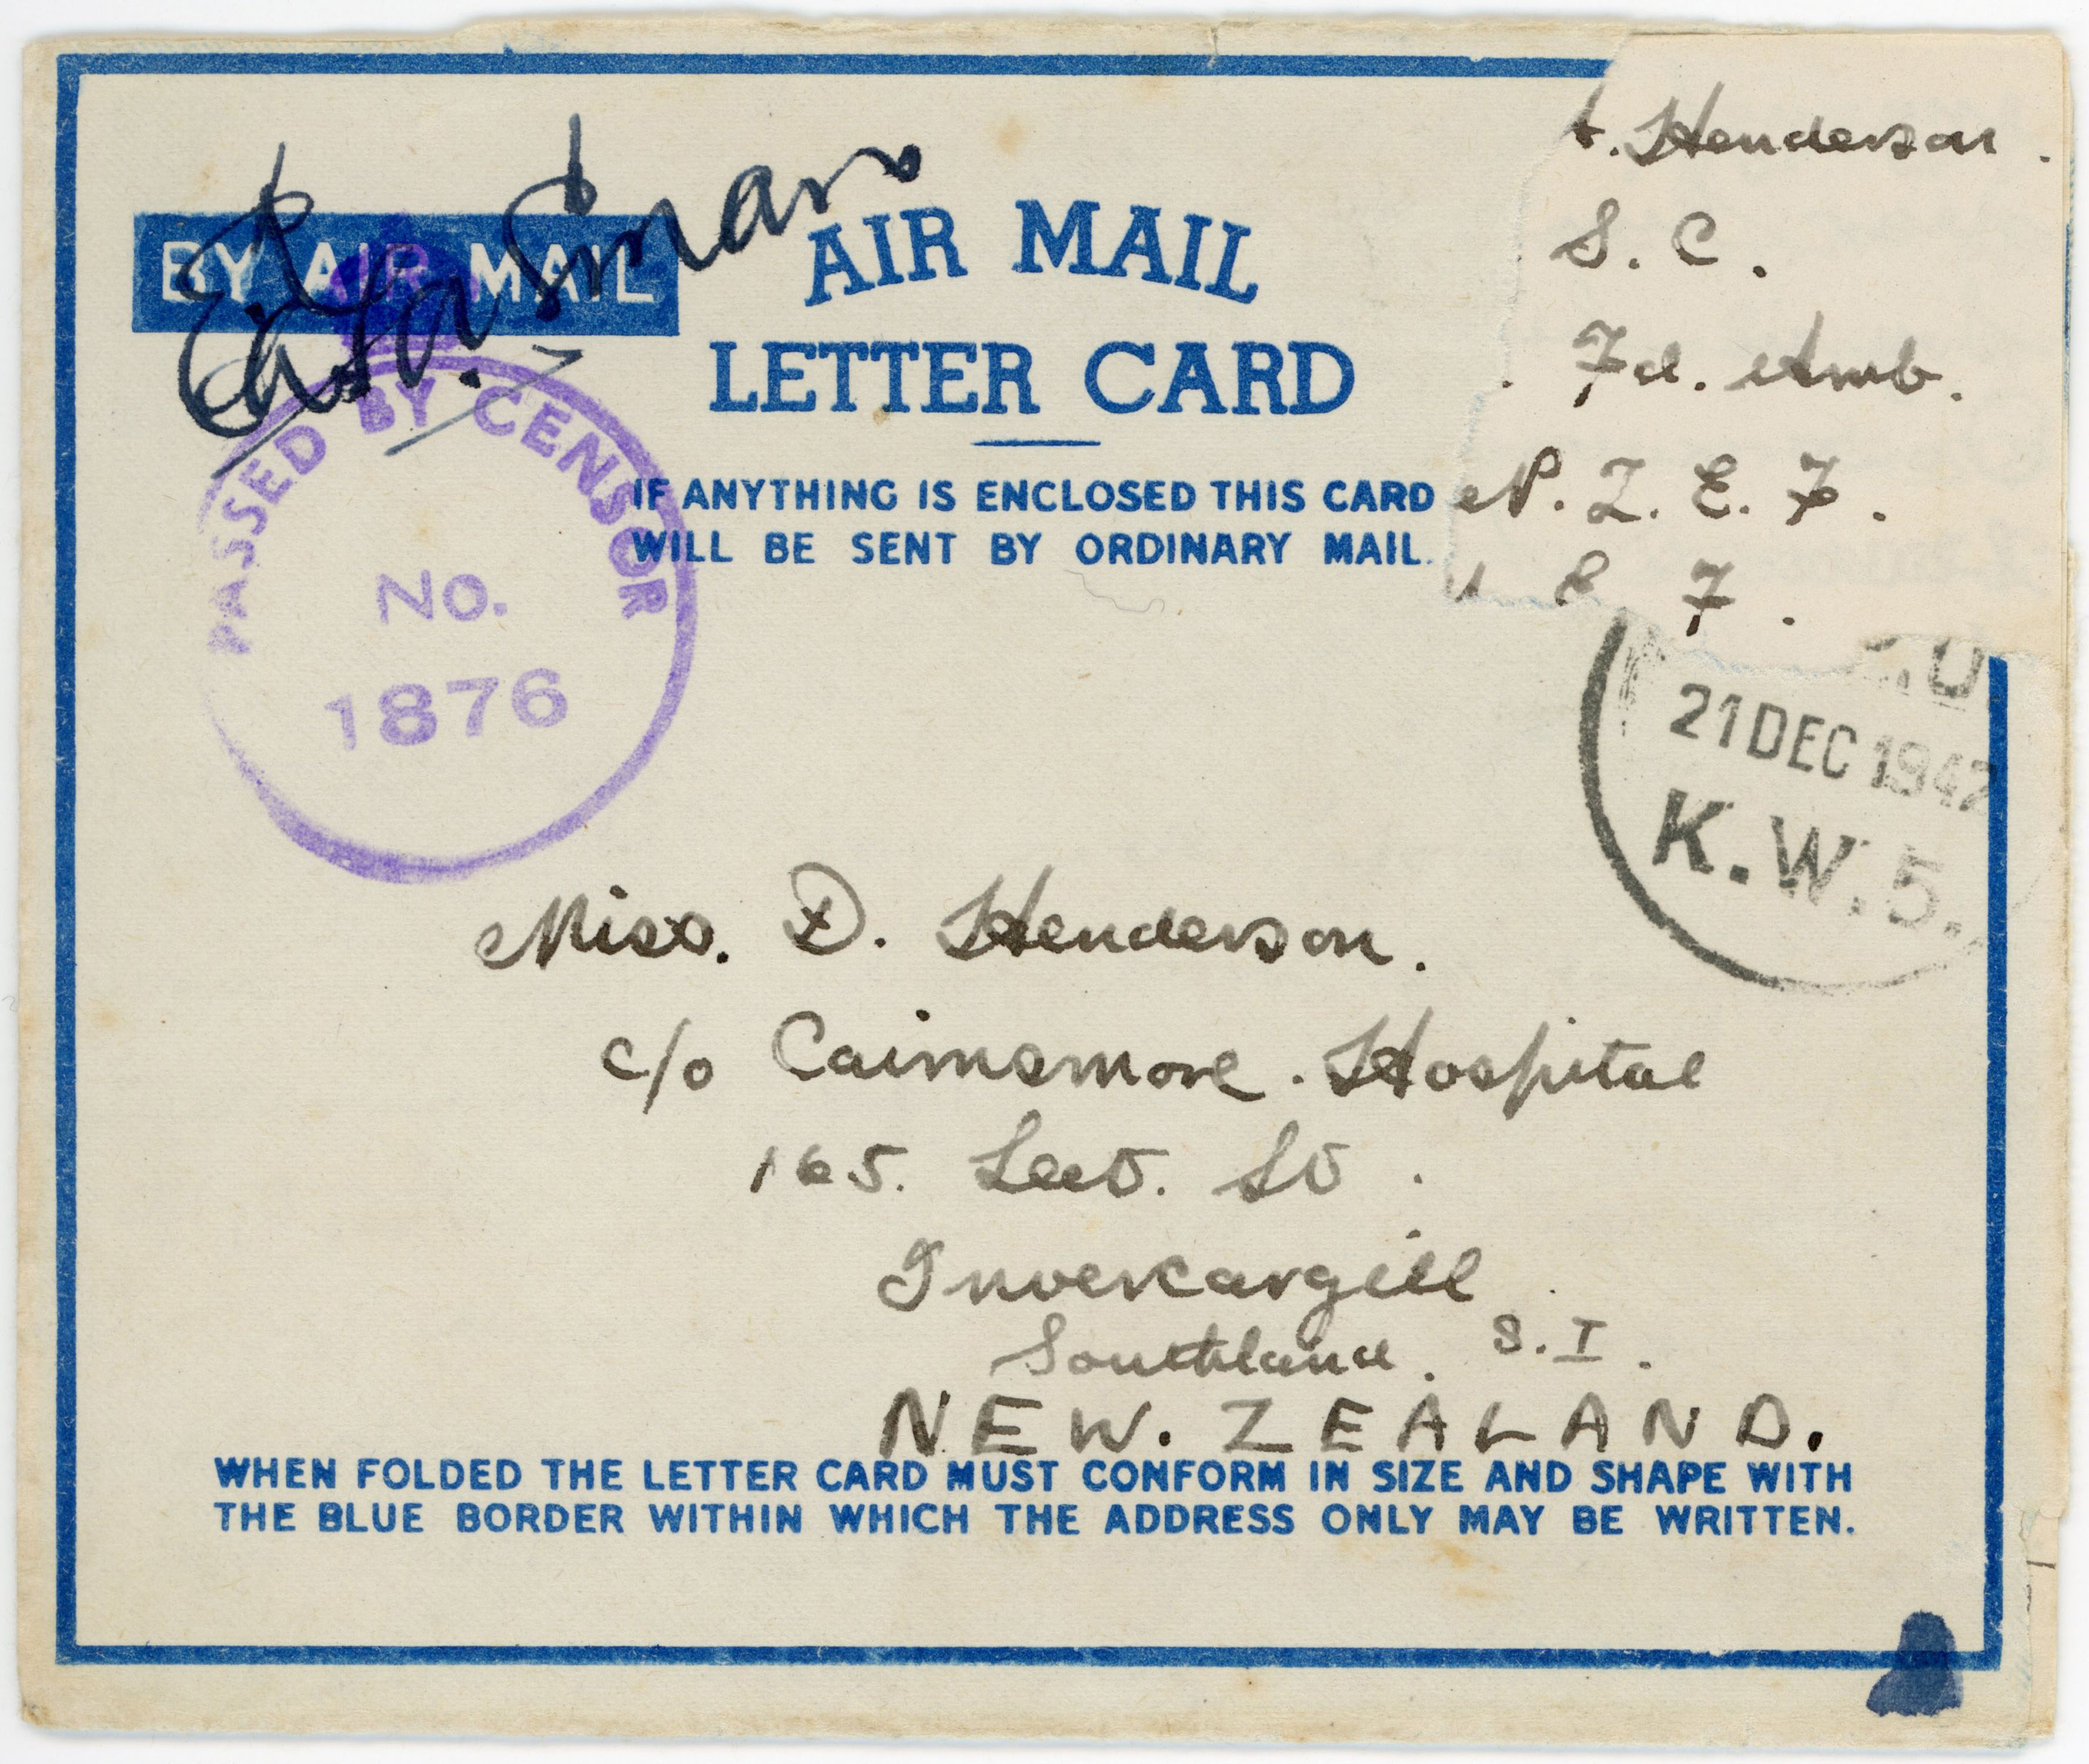 BY AIR MAIL
AIR MAIL
LETTER CARD
IF ANYTHING IS ENCLOSED THIS CARD
WILL BE SENT BY ORDINARY MAIL.
Henderson.
S. C.
Fd. Amb.
N. Z. E. F.
E F.
PASSED BY CENSOR
No.
1876
21 DEC 1942
K.W.5.
Miss. D. Henderson.
c/o Cairnsmore. Hospital
165. Leet. St.
Invercargill
Southland. S.I.
NEW. ZEALAND.
WHEN FOLDED THE LETTER CARD MUST CONFORM IN SIZE AND SHAPE WITH
THE BLUE BORDER WITHIN WHICH THE ADDRESS ONLY MAY BE WRITTEN.